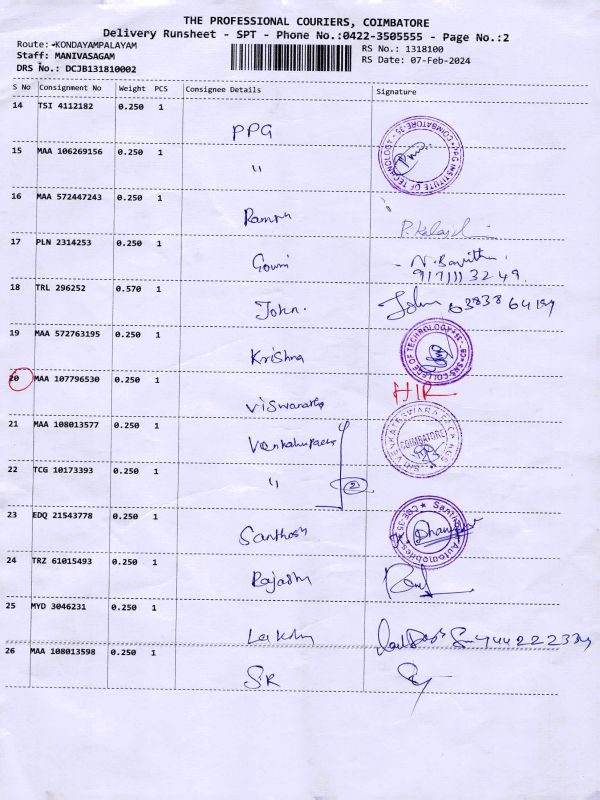 THE PROFESSIONAL COURIERS, COIMBATORE
Delivery Runsheet - SPT - Phone No.:0422-3505555 - Page No.:2
Route: -KONDAYAMPALAYAM
Staff: MANIVASAGAM
DRS No.: DCJB131810002
RS No.: 1318100
RS Date: 07-Feb-2024
S No Consignment No Weight PCS Consignee Details Signature
14 TSI 4112182 0.250 1 PPG
15 MAA 106269156 0.250 1 "
PPG INSTITUTE OF TECHNOLOGY COIMBATORE-35
16 MAA 572447243 0.250 1
17 PLN 2314253 0.250 1 Gowri
18 TRL 296252 0.570 1 John. John
19 MAA 572763195 0.250 1 Krishna
SNS COLLEGE OF TECHNOLOGY
20 MAA 107796530 0.250 1
21 MAA 108013577 0.250 1
COIMBATORE
22 TCG 10173393 0.250 1 " 2
23 EDQ 21543778 0.250 1 Santhosh
Automobiles CBE-35
24 TRZ 61015493 0.250 1
25 MYD 3046231 0.250 1
26 MAA 108013598 0.250 1 SR